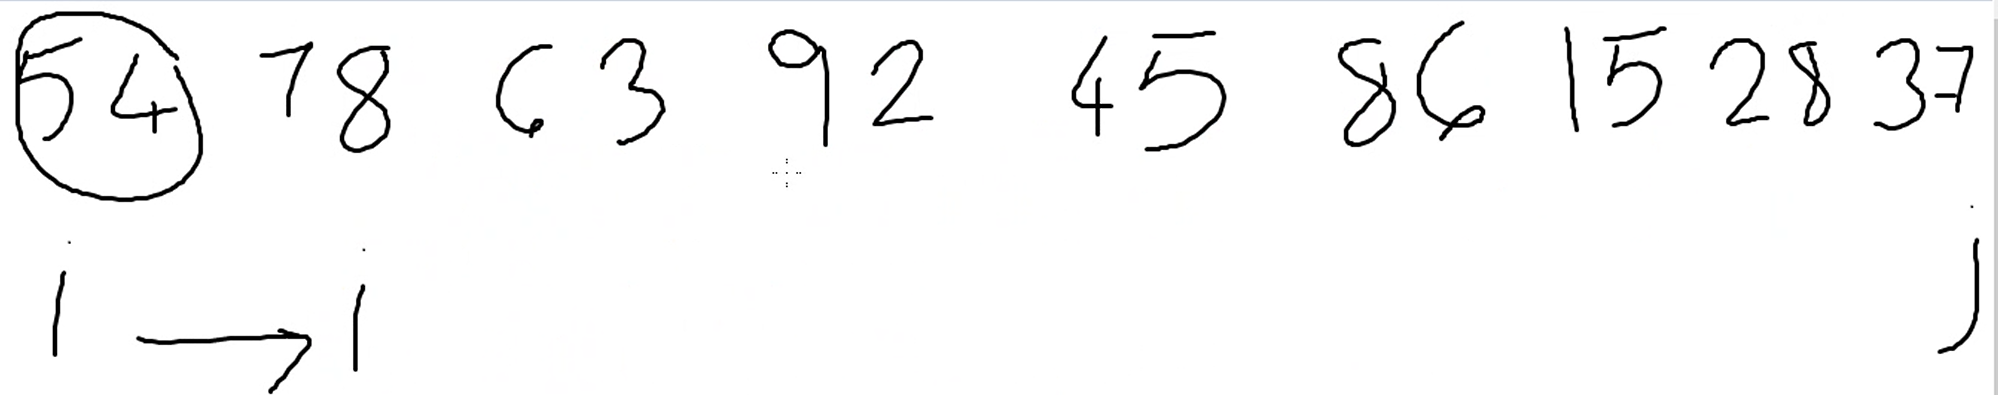 54 78 63 92 45 86 15 28 37
i → i j